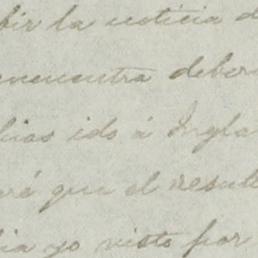 bir la noticia d
encuentra deber
bias ido á Ingla
rá que el resul
bia yo visto por